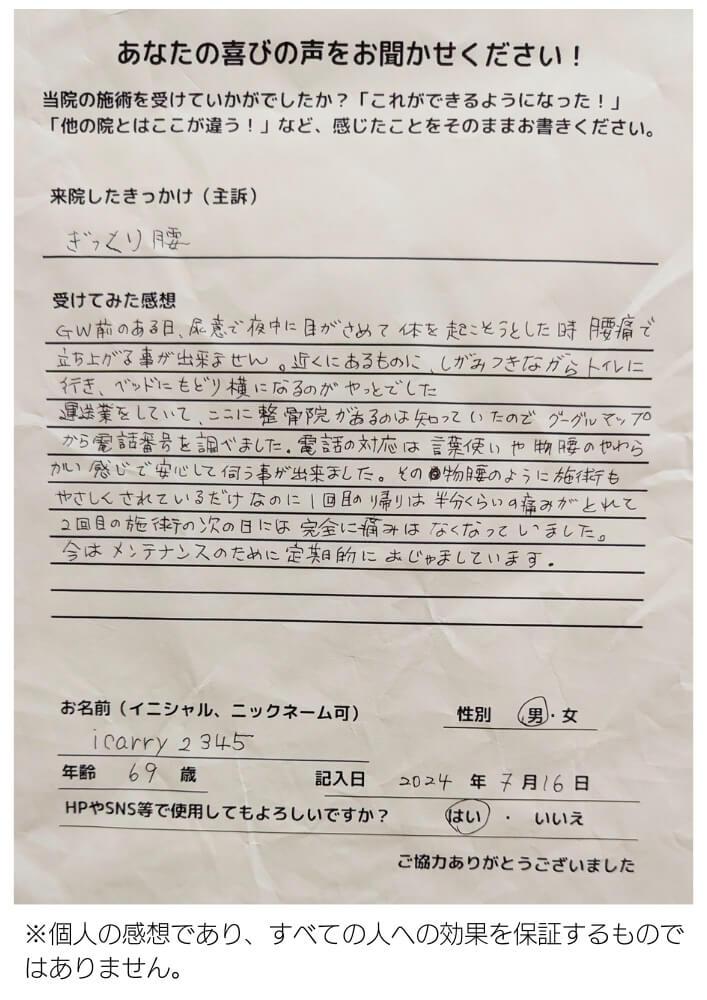 あなたの喜びの声をお聞かせください！
当院の施術を受けていかがでしたか？「これができるようになった！」
「他の院とはここが違う！」など、感じたことをそのままお書きください。
来院したきっかけ（主訴）
ぎっくり腰
受けてみた感想
GW前のある日、尿意で夜中に目がさめて体を起こそうとした時腰痛で
立ち上がる事が出来ません。近くにあるものに、しがみつきながらトイレに
行き、ベッドにもどり横になるのがやっとでした
運送業をしていて、ここに整骨院があるのは知っていたのでグーグルマップ
から電話番号を調べました。電話の対応は言葉使いや物腰のやわら
かい感じで安心して伺う事が出来ました。その物腰のように施術も
やさしくされているだけなのに1回目の帰りは半分くらいの痛みがとれて
2回目の施術の次の日には完全に痛みはなくなっていました。
今はメンテナンスのために定期的におじゃましています。
お名前（イニシャル、ニックネーム可） 性別 男・女
icarry2345
年齢 69 歳 記入日 2024 年 7 月 16 日
HPやSNS等で使用してもよろしいですか？ はい ・ いいえ
ご協力ありがとうございました
※個人の感想であり、すべての人への効果を保証するもので
はありません。